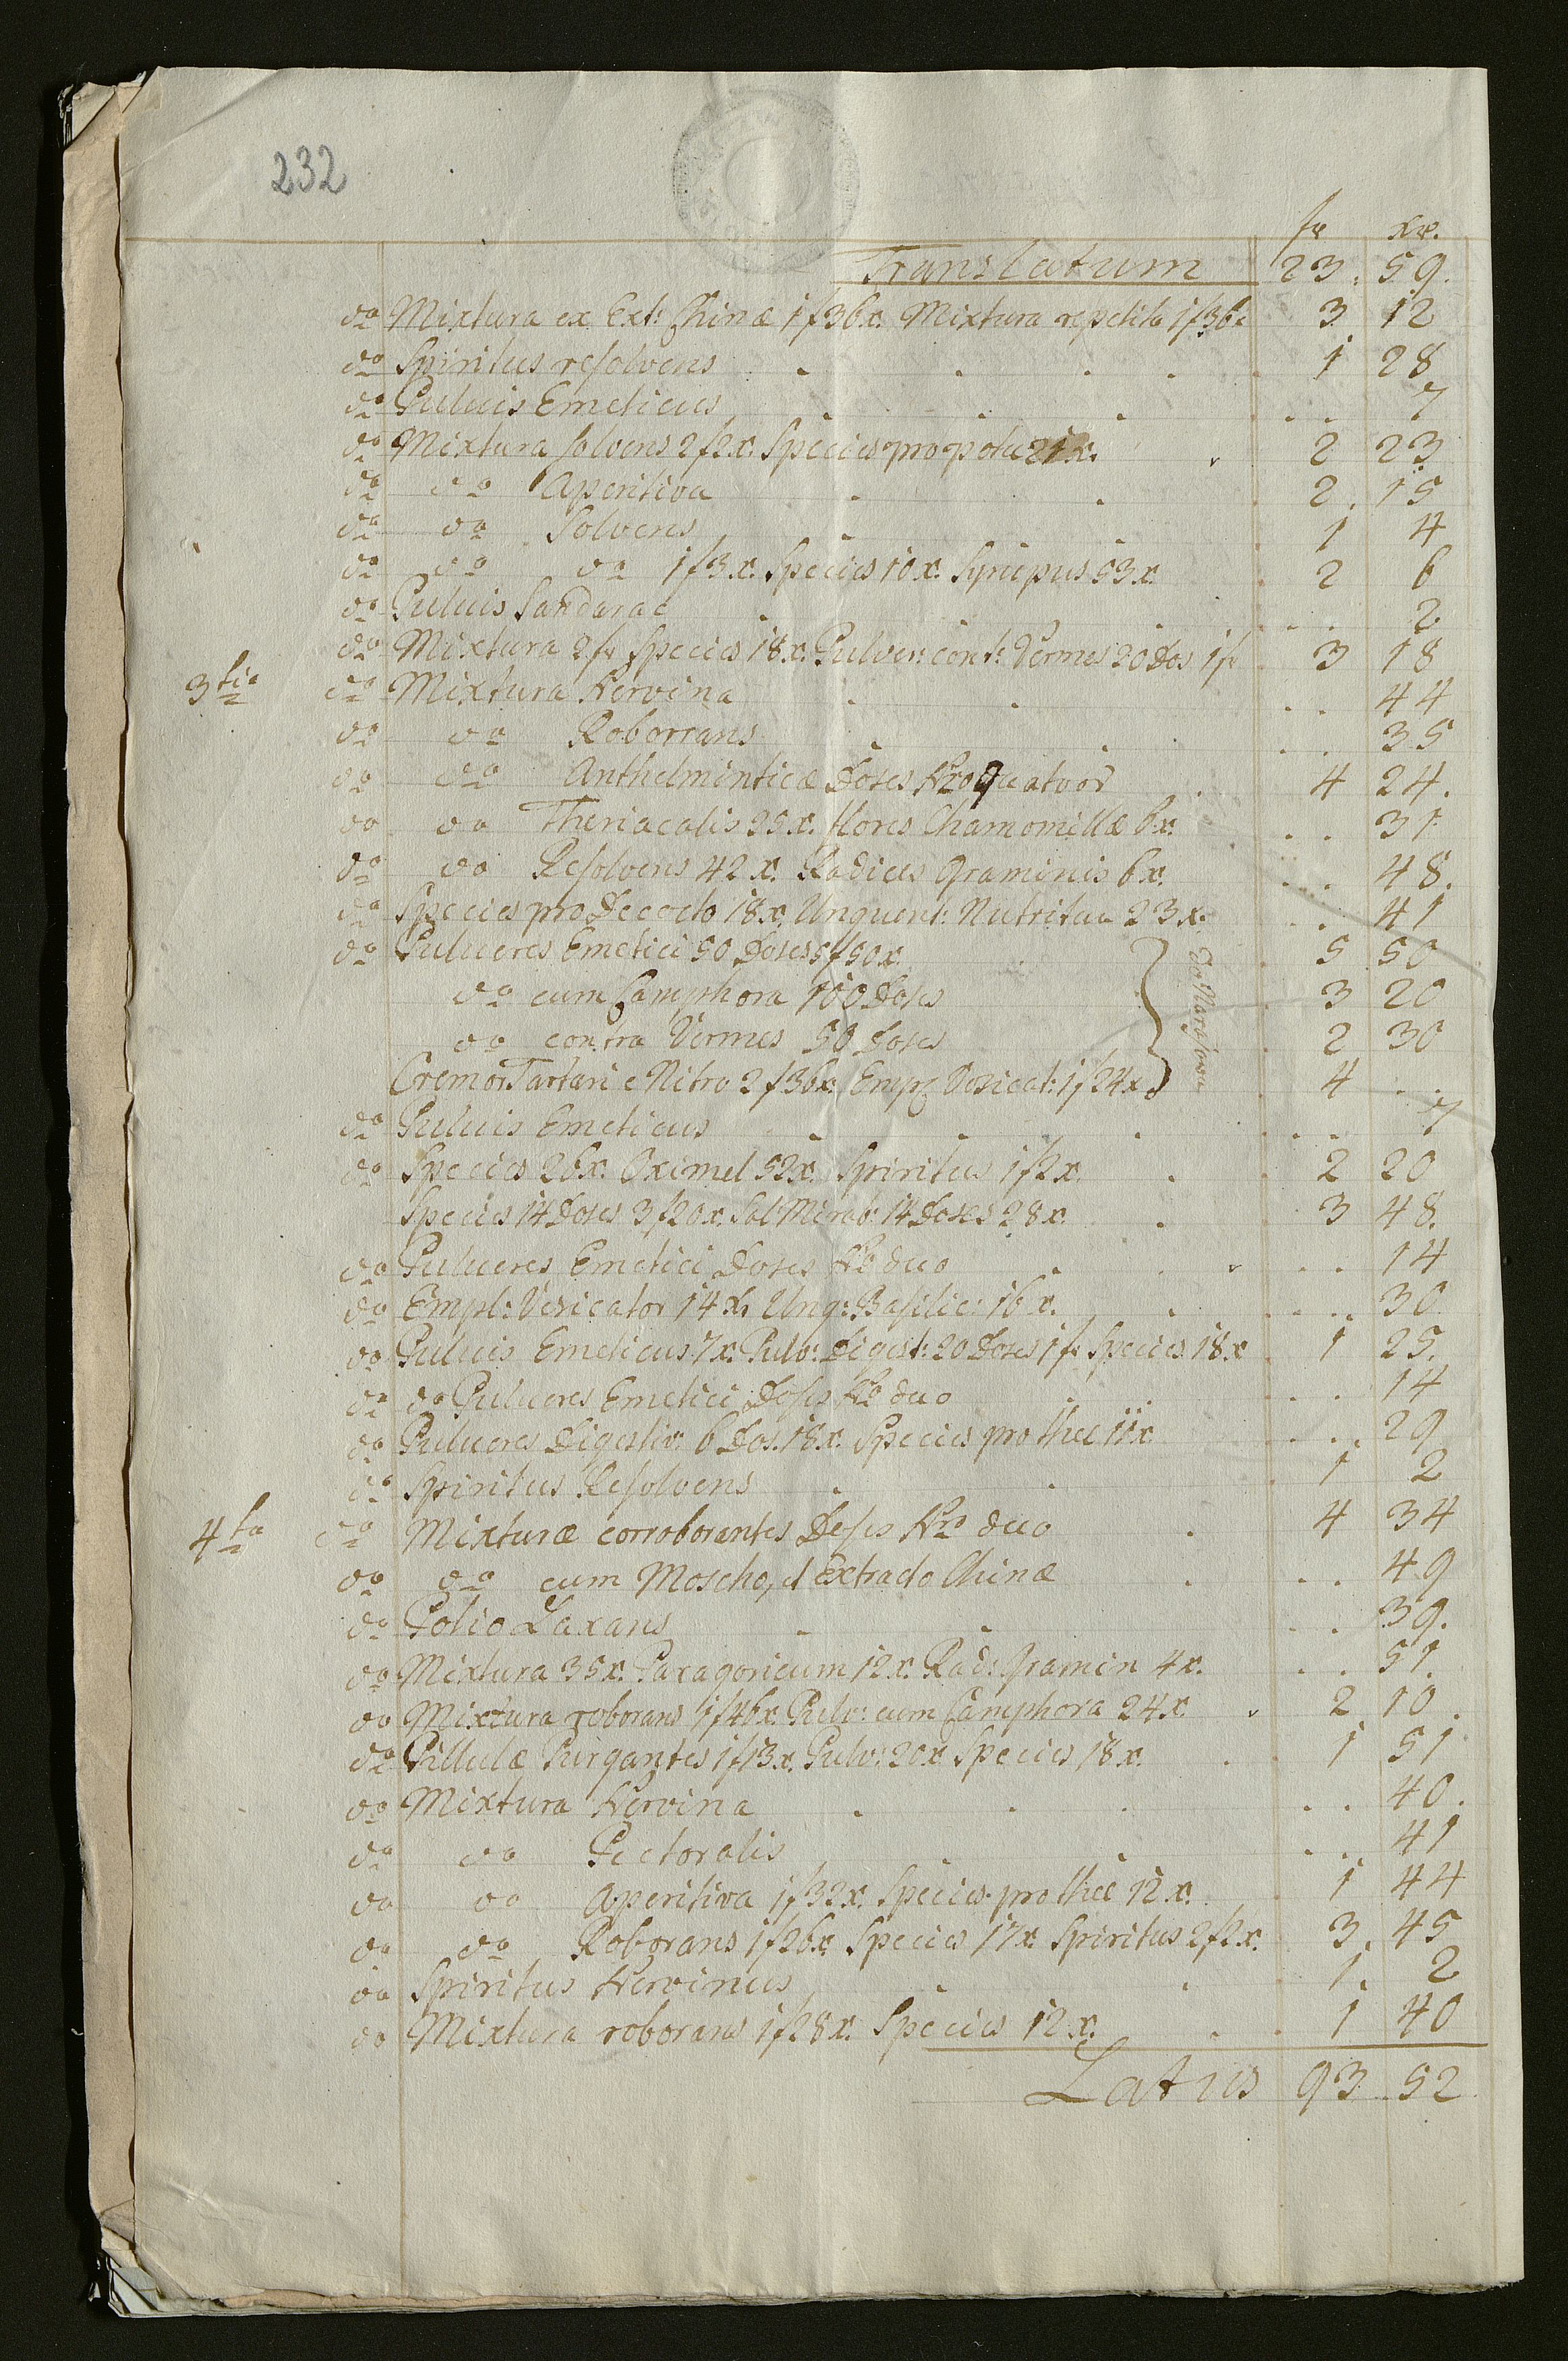 232
fr xr.
Translatum 23. 59.
do Mixtura ex Ext: Chinæ 1f36x. Mixtura repetita 1f36x 3 12
do Spiritus resolvens 1 28
do Pulvis Emeticus 7
do Mixtura solvens 2f2x. Species pro potu 21x. 2 23
do do Aperitiva 2. 15
do do Solvens 1 4
do do do 1f3x. Species 10x. Syrupus 53x. 2 6
do Pulvis Sandarac 2
do Mixtura 2fr Species 18x. Pulver: cont: Vermes 20 Dos 1fr 3 18
3tia do Mixtura Nervina 44
do do Roborrans 35
do do Anthelminticæ Doses Nro quatvor 4 24.
do do Theriacalis 25x. flores Chamomillæ 6x. 31
do do Resolvens 42x. Radices Graminis 6x. 48.
do Species pro Decocto 18x. Unguent: Nutritum 23x. 41
do Pulveres Emetici 50 Doses 5f50x. 5 50
do cum Camphora 100 Doses 3 20
do contra Vermes 50 Doses 2 30
Cremor Tartari e Nitro 2f36x. Empl Vesicat: 1f24x. 4 . .
do Pulvis Emeticus 7
do Species 26x. Oximel 52x. Spiritus 1f2x. 2 20
Species 14 Doses 3f20x. Sal: Mirab: 14 Doses 28x. 3 48.
do Pulveres Emetici Doses No duo 14
do Empl: Vesicator 14x. Ung: Basilic: 16x. 30
do Pulvis Emeticus 7x. Pulv: Digest: 20 Doses 1fr Species 18x 1 25.
do do Pulveres Emetici Doses No duo 14
do Pulveres Digestiv: 6 Dos. 18x. Species pro thee 11x 29
do Spiritus Resolvens 1 2
4ta do Mixturæ corroborantes Doses Nro duo 4 34
do do cum Moscho, et Extracto Chinæ 49
do Potio Laxans 39.
do Mixtura 35x. Paragoricum 12x. Rad: Gramin 4x. 51
do Mixtura roborans 1f46x. Pulv: cum Camphora 24x 2 10.
do Pillulæ Purgantes 1f13x. Pulv: 20x. Species 18x. 1 51
do Mixtura Nervina 40.
do do Pectoralis 41
do do Aperitiva 1f32x. Species pro thee 12x. 1 44
do do Roborans 1f26x. Species 17x. Spiritus 2f2x. 3. 45
do Spiritus Nervinus 1. 2
do Mixtura roborans 1f28x. Species 12x. 1 40
Latus 93 52